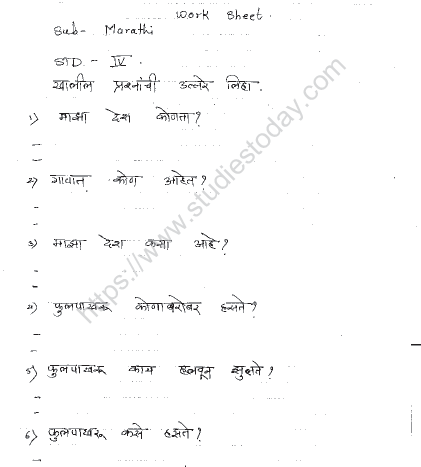 Work Sheet.
Sub- Marathi
STD.- IV.
खालील प्रश्नांची उत्तरे लिहा.
1) माझा देश कोणता?
2) गावात कोण आहेत?
3) माझा देश कसा आहे?
4) फुलपाखरू कोणाबरोबर हसते?
5) फुलपाखरू काय हलवून झुलते?
6) फुलपाखरू कसे हसते?
https://www.studiestoday.com